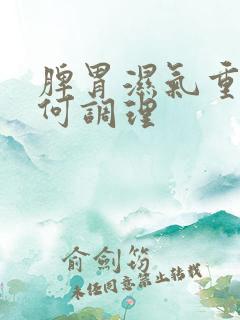 脾胃濕氣重
何調理
俞劍筠
未經同意禁止轉載